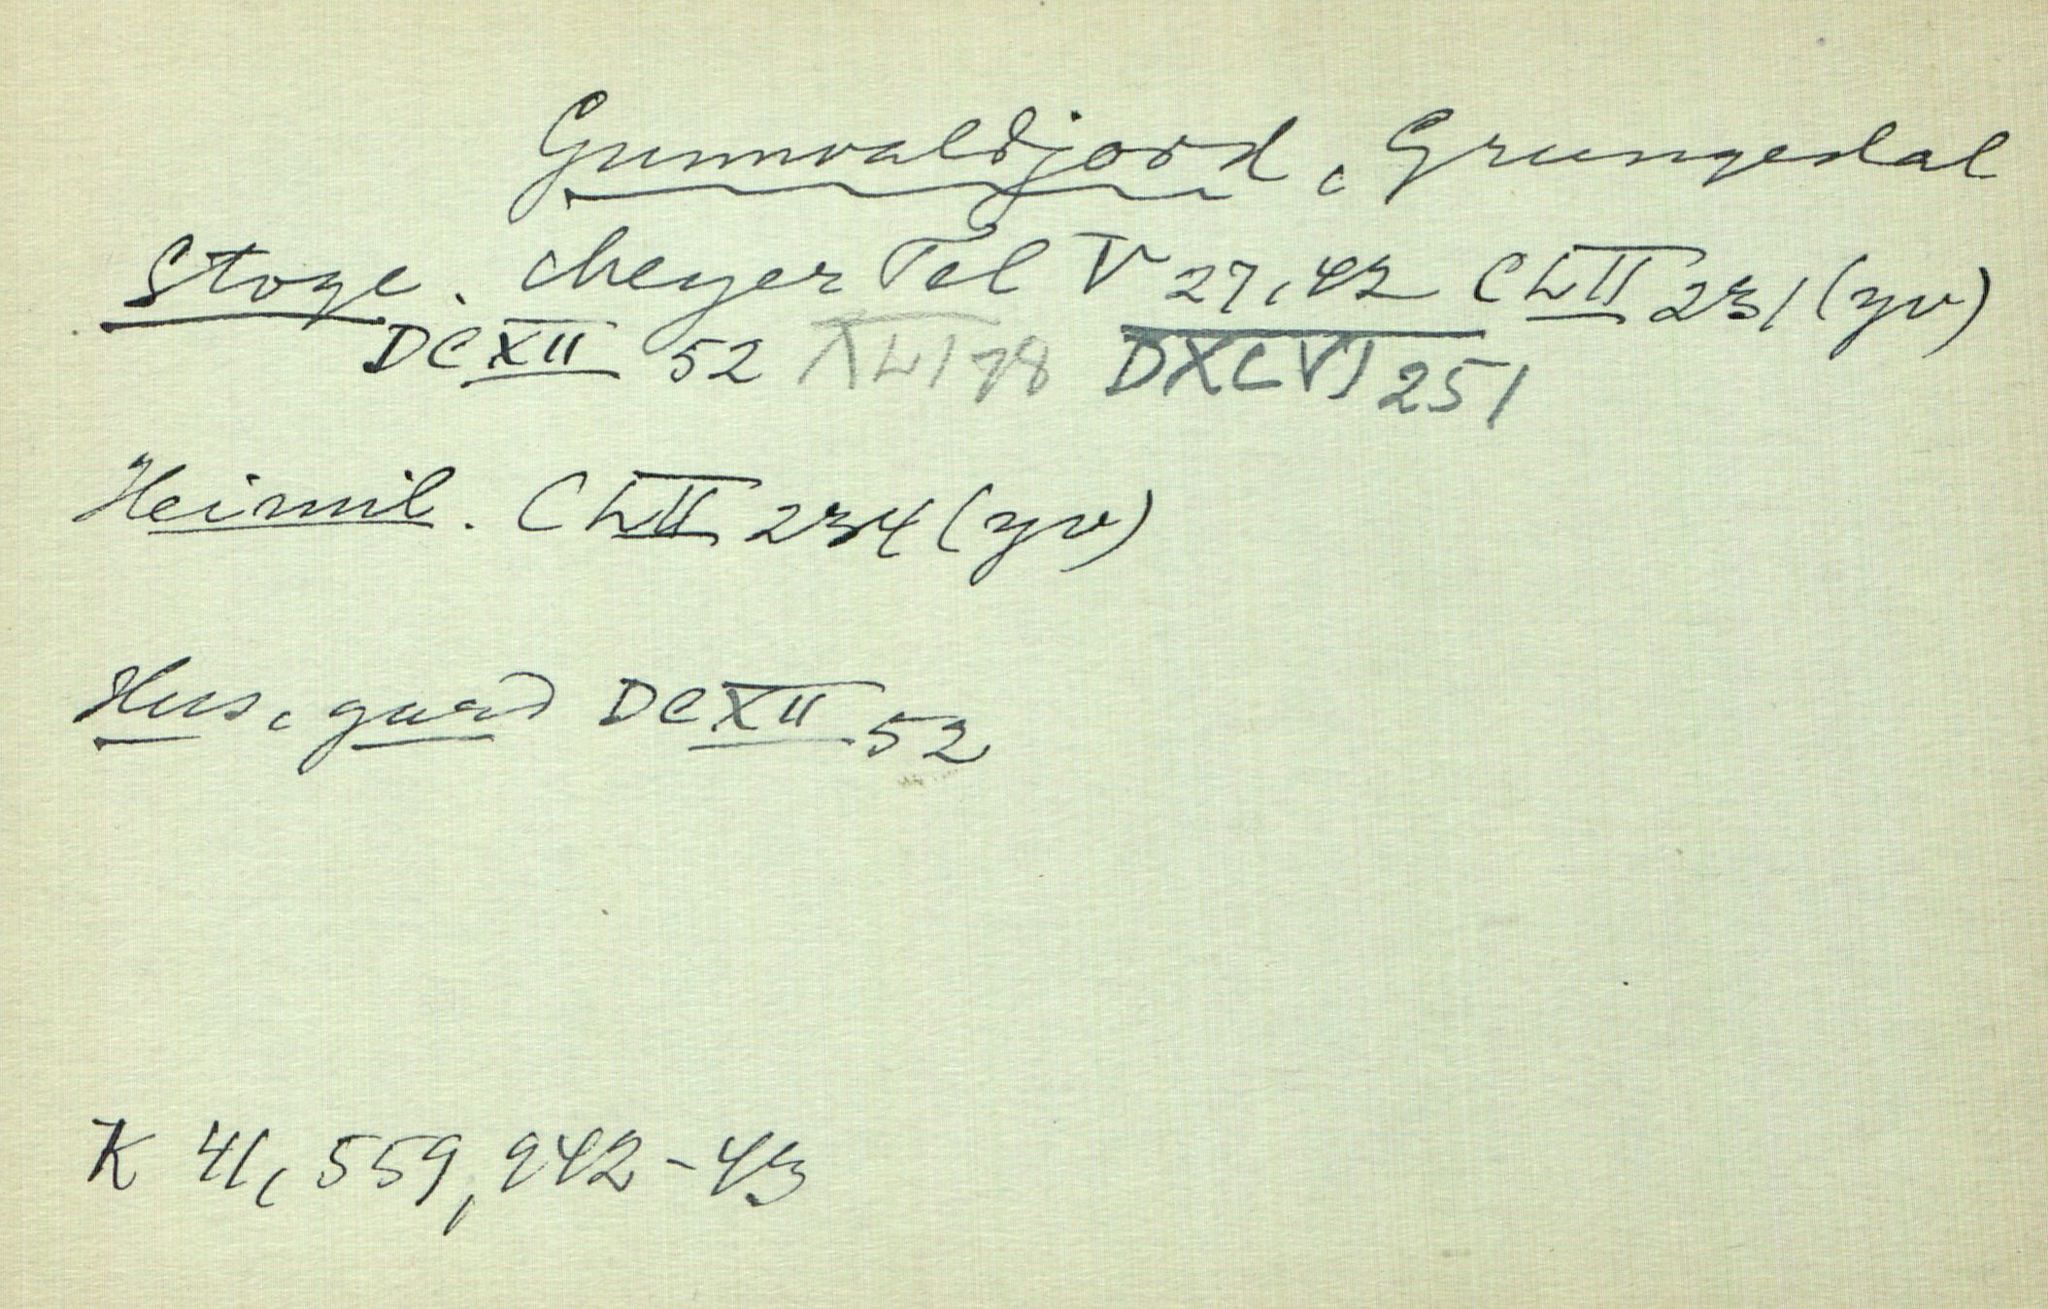 Gunnvaldjord, Grungedal
Stoge. Meyer Tel V 27, 42 CLII 231 (yv)
DCXII 52 XLI 78 DXCVI 251
Heimil. CLII 234 (yv)
Hus, gard DCXII 52
K 41, 559, 942-43